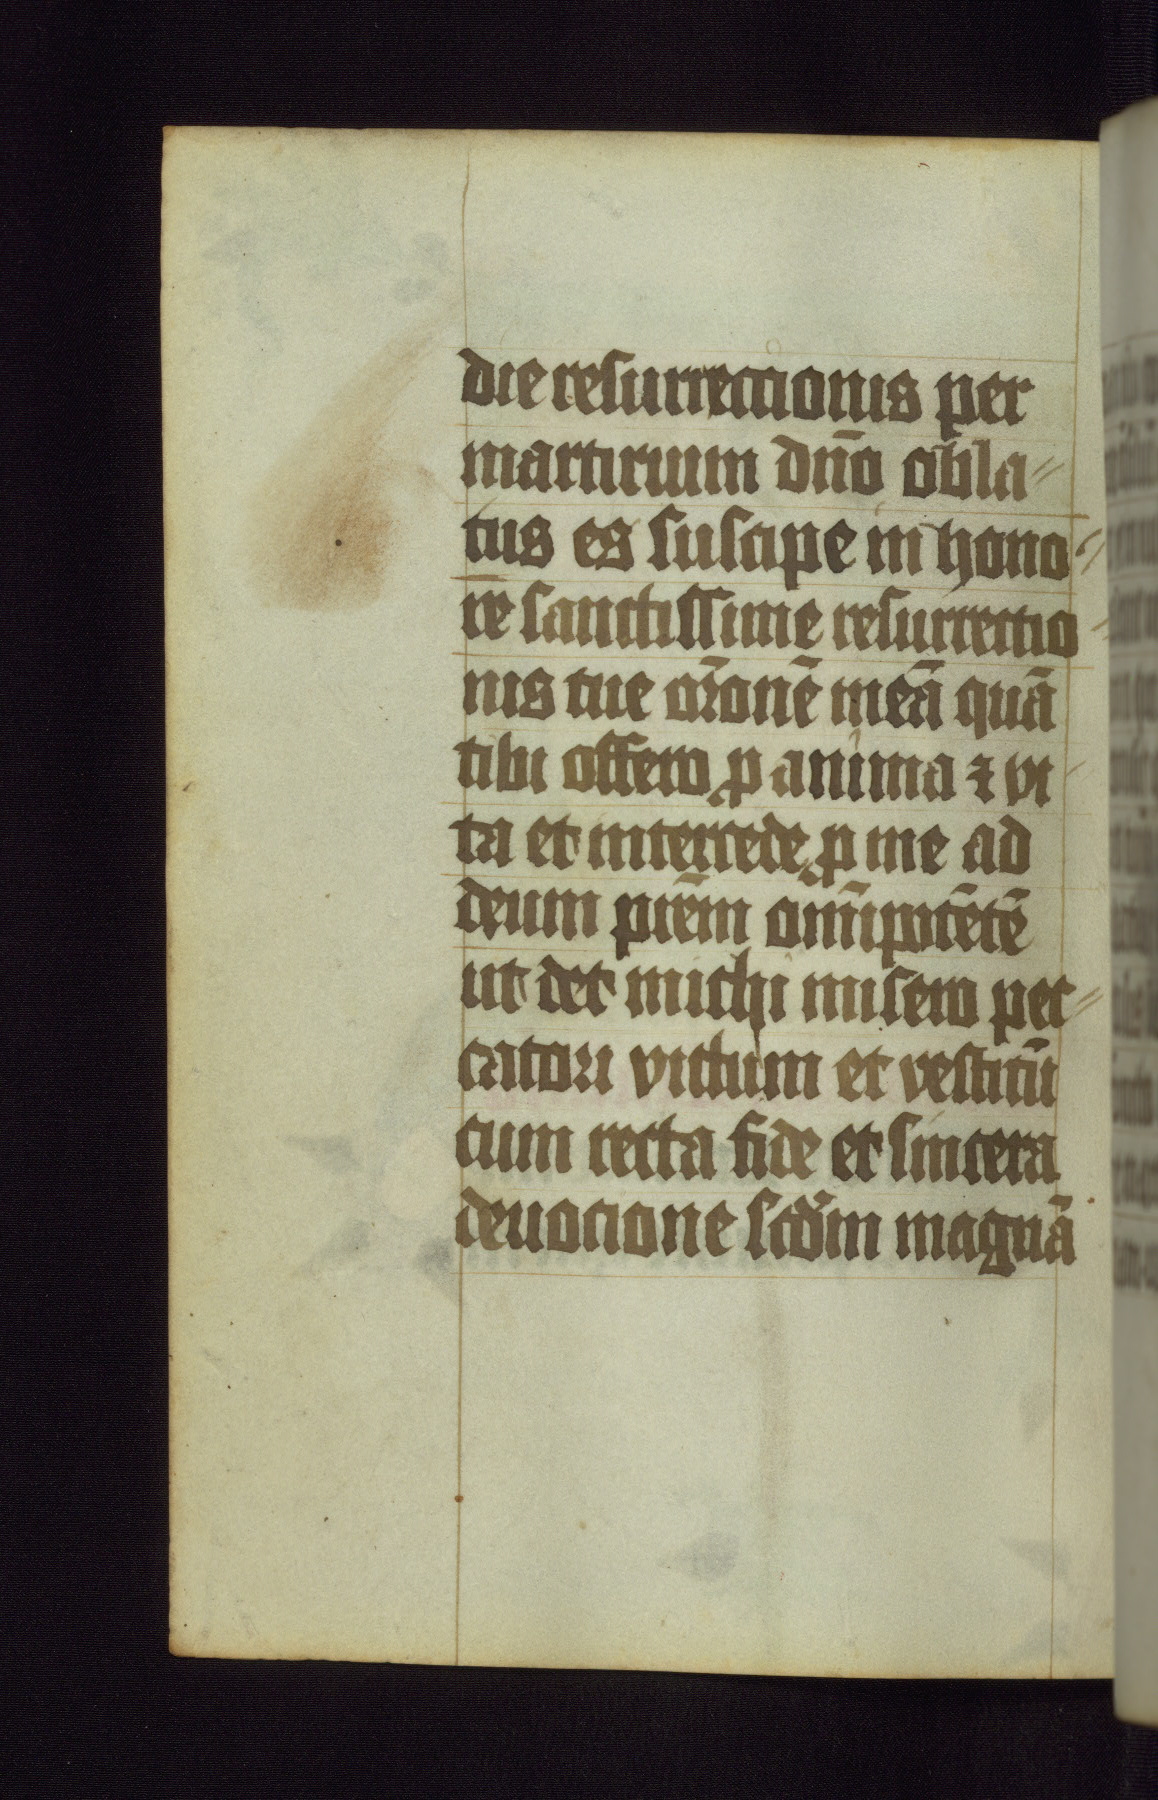 die resurrectionis per
martirium dn̄o obla⸗
tus es suscipe in hono⸗
re sanctissime resurrectio⸗
nis tue or̄onē meā quā
tibi offero ꝓ anima ⁊ vi⸗
ta et intercede ꝓ me ad
deum prēm om̄ipotētē
ut det michi misero pec⸗
catori victum et vestitū
cum recta fide et sincera
deuotione scd̄m magnā